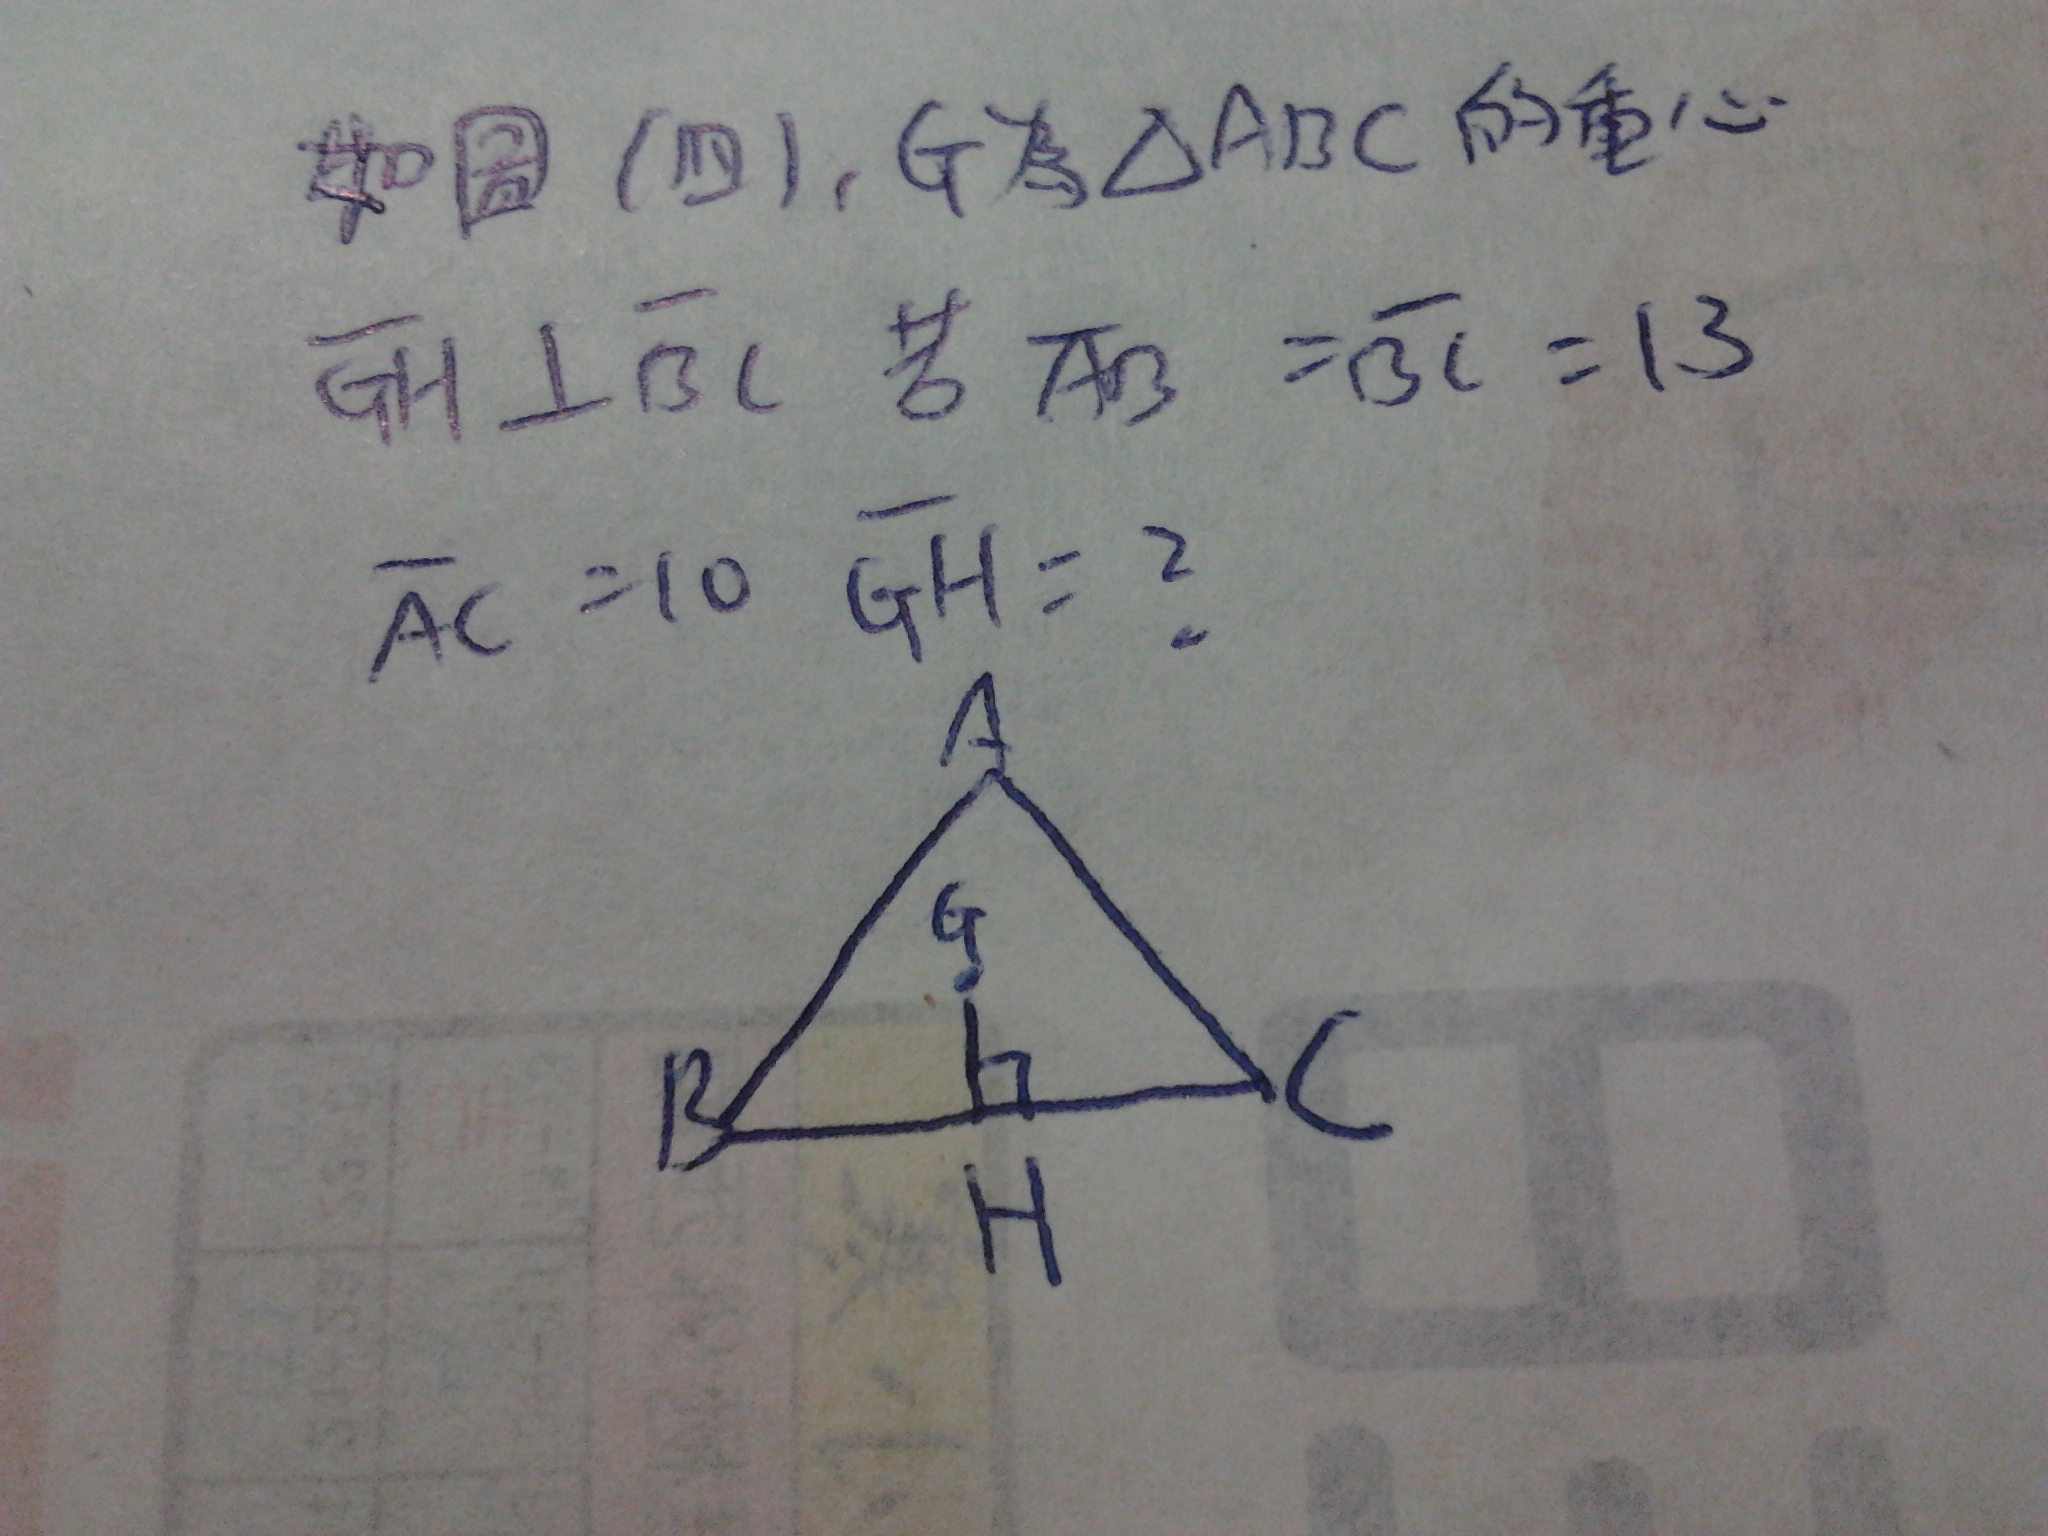 如圖(四), G為△ABC的重心
G̅H̅⊥B̅C̅ 若 A̅B̅ =B̅C̅=13
A̅C̅=10 G̅H̅=?
A
G
B
C
H